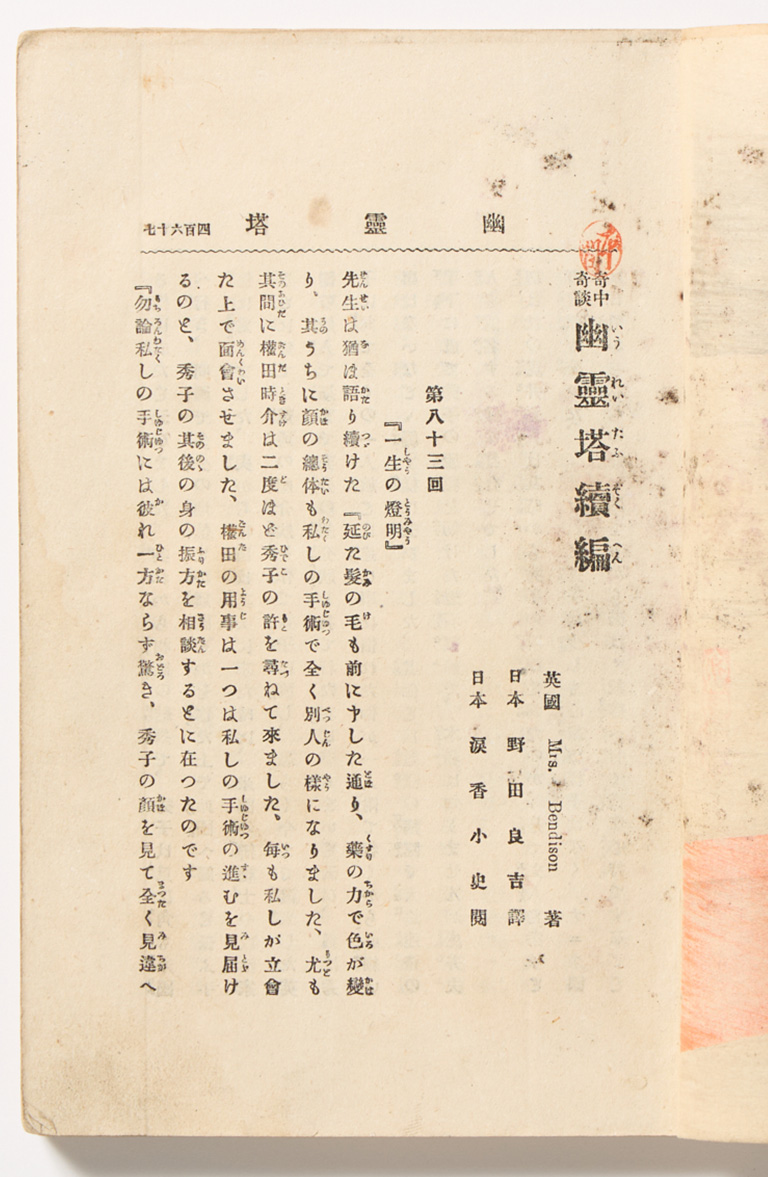 幽靈塔
四百六十七
奇中奇談
幽靈塔續編
英國 Mrs. Bendison 著
日本 野田良吉譯
日本 淚香小史閱
第八十三回
『一生の燈明』
先生は猶ほ語り續けた『延た髮の毛も前に申した通り、藥の力で色が變
り、其うちに顏の總体も私しの手術で全く別人の樣になりました、尤も
其間に權田時介は二度ほど秀子の許を尋ねて來ました、每も私しが立會
た上で面會させました、權田の用事は一つは私しの手術の進むを見屆け
るのと、秀子の其後の身の振方を相談するとに在つたのです
『勿論私しの手術には彼れ一方ならず驚き、秀子の顏を見て全く見違へ